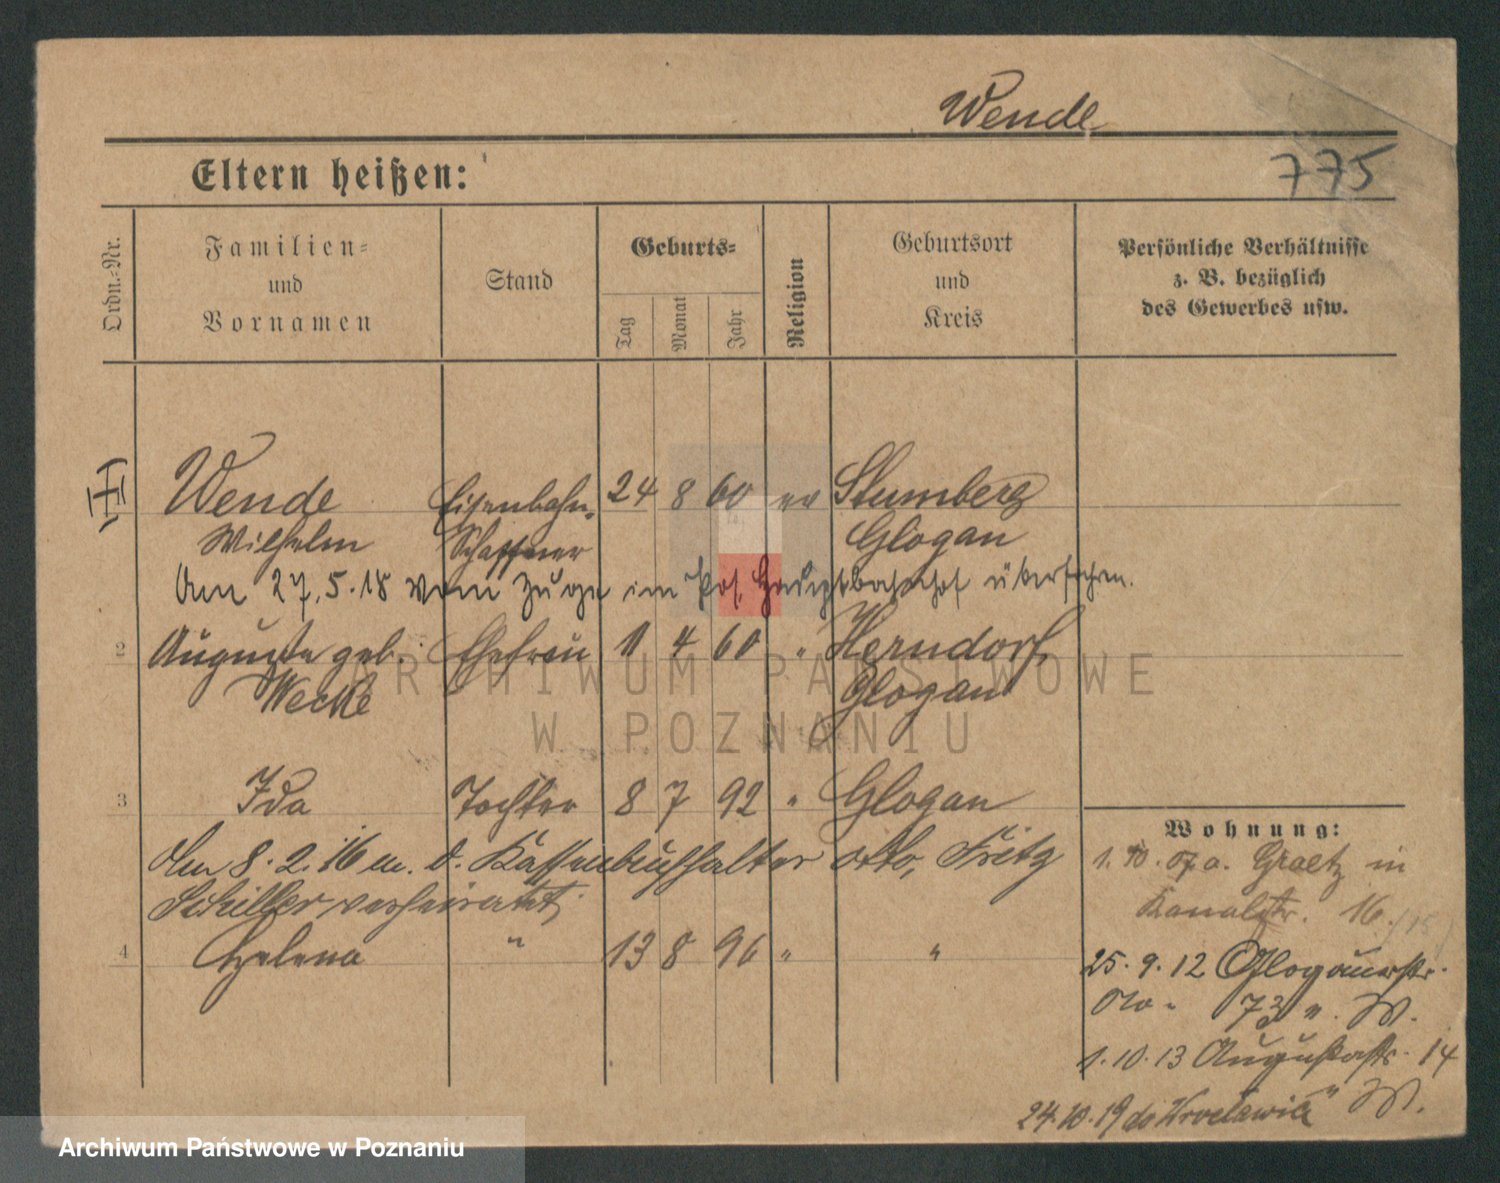 Wende
Eltern heißen:
775
Ordn.-Nr.
Familien-
und
Vornamen
Stand
Geburts-
Tag
Monat
Jahr
Religion
Geburtsort
und
Kreis
Persönliche Verhältnisse
z. B. bezüglich
des Gewerbes usw.
Wende Eisenbahn- 24 8 60 ev Stumberg
Wilhelm Schaffner Glogau
Am 27.5.18 vom Zuge im Pos. Hauptbahnhof überfahren.
2 Auguste geb. Ehefrau 11 4 60 " Herndorf,
Wecke Glogau
ARCHIWUM PAŃSTWOWE
W POZNANIU
3 Ida Tochter 8 7 92 " Glogau
Am 8.2.16 m. d. Kassenbuchhalter Otto, Fritz
Schiller verheiratet.
4 Helena " 13 8 96 " "
Wohnung:
1.10.07 a. Graetz in
Kanalstr. 16.
25.9.12 Glogauerstr.
No. 73
1.10.13 Augustastr. 14
24.10.19 do Wrocławia
Archiwum Państwowe w Poznaniu